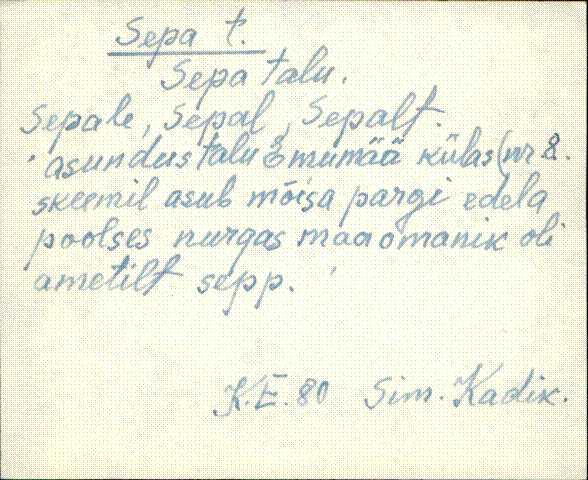 Sepa t.
Sepa talu.
Sepale, Sepal, Sepalt.
asundustalu Emumää külas (nr 8.
skeemil asub mõisa pargi edela
poolses nurgas maaomanik oli
ametilt sepp.
K.E. 80 Sim. Kadik.